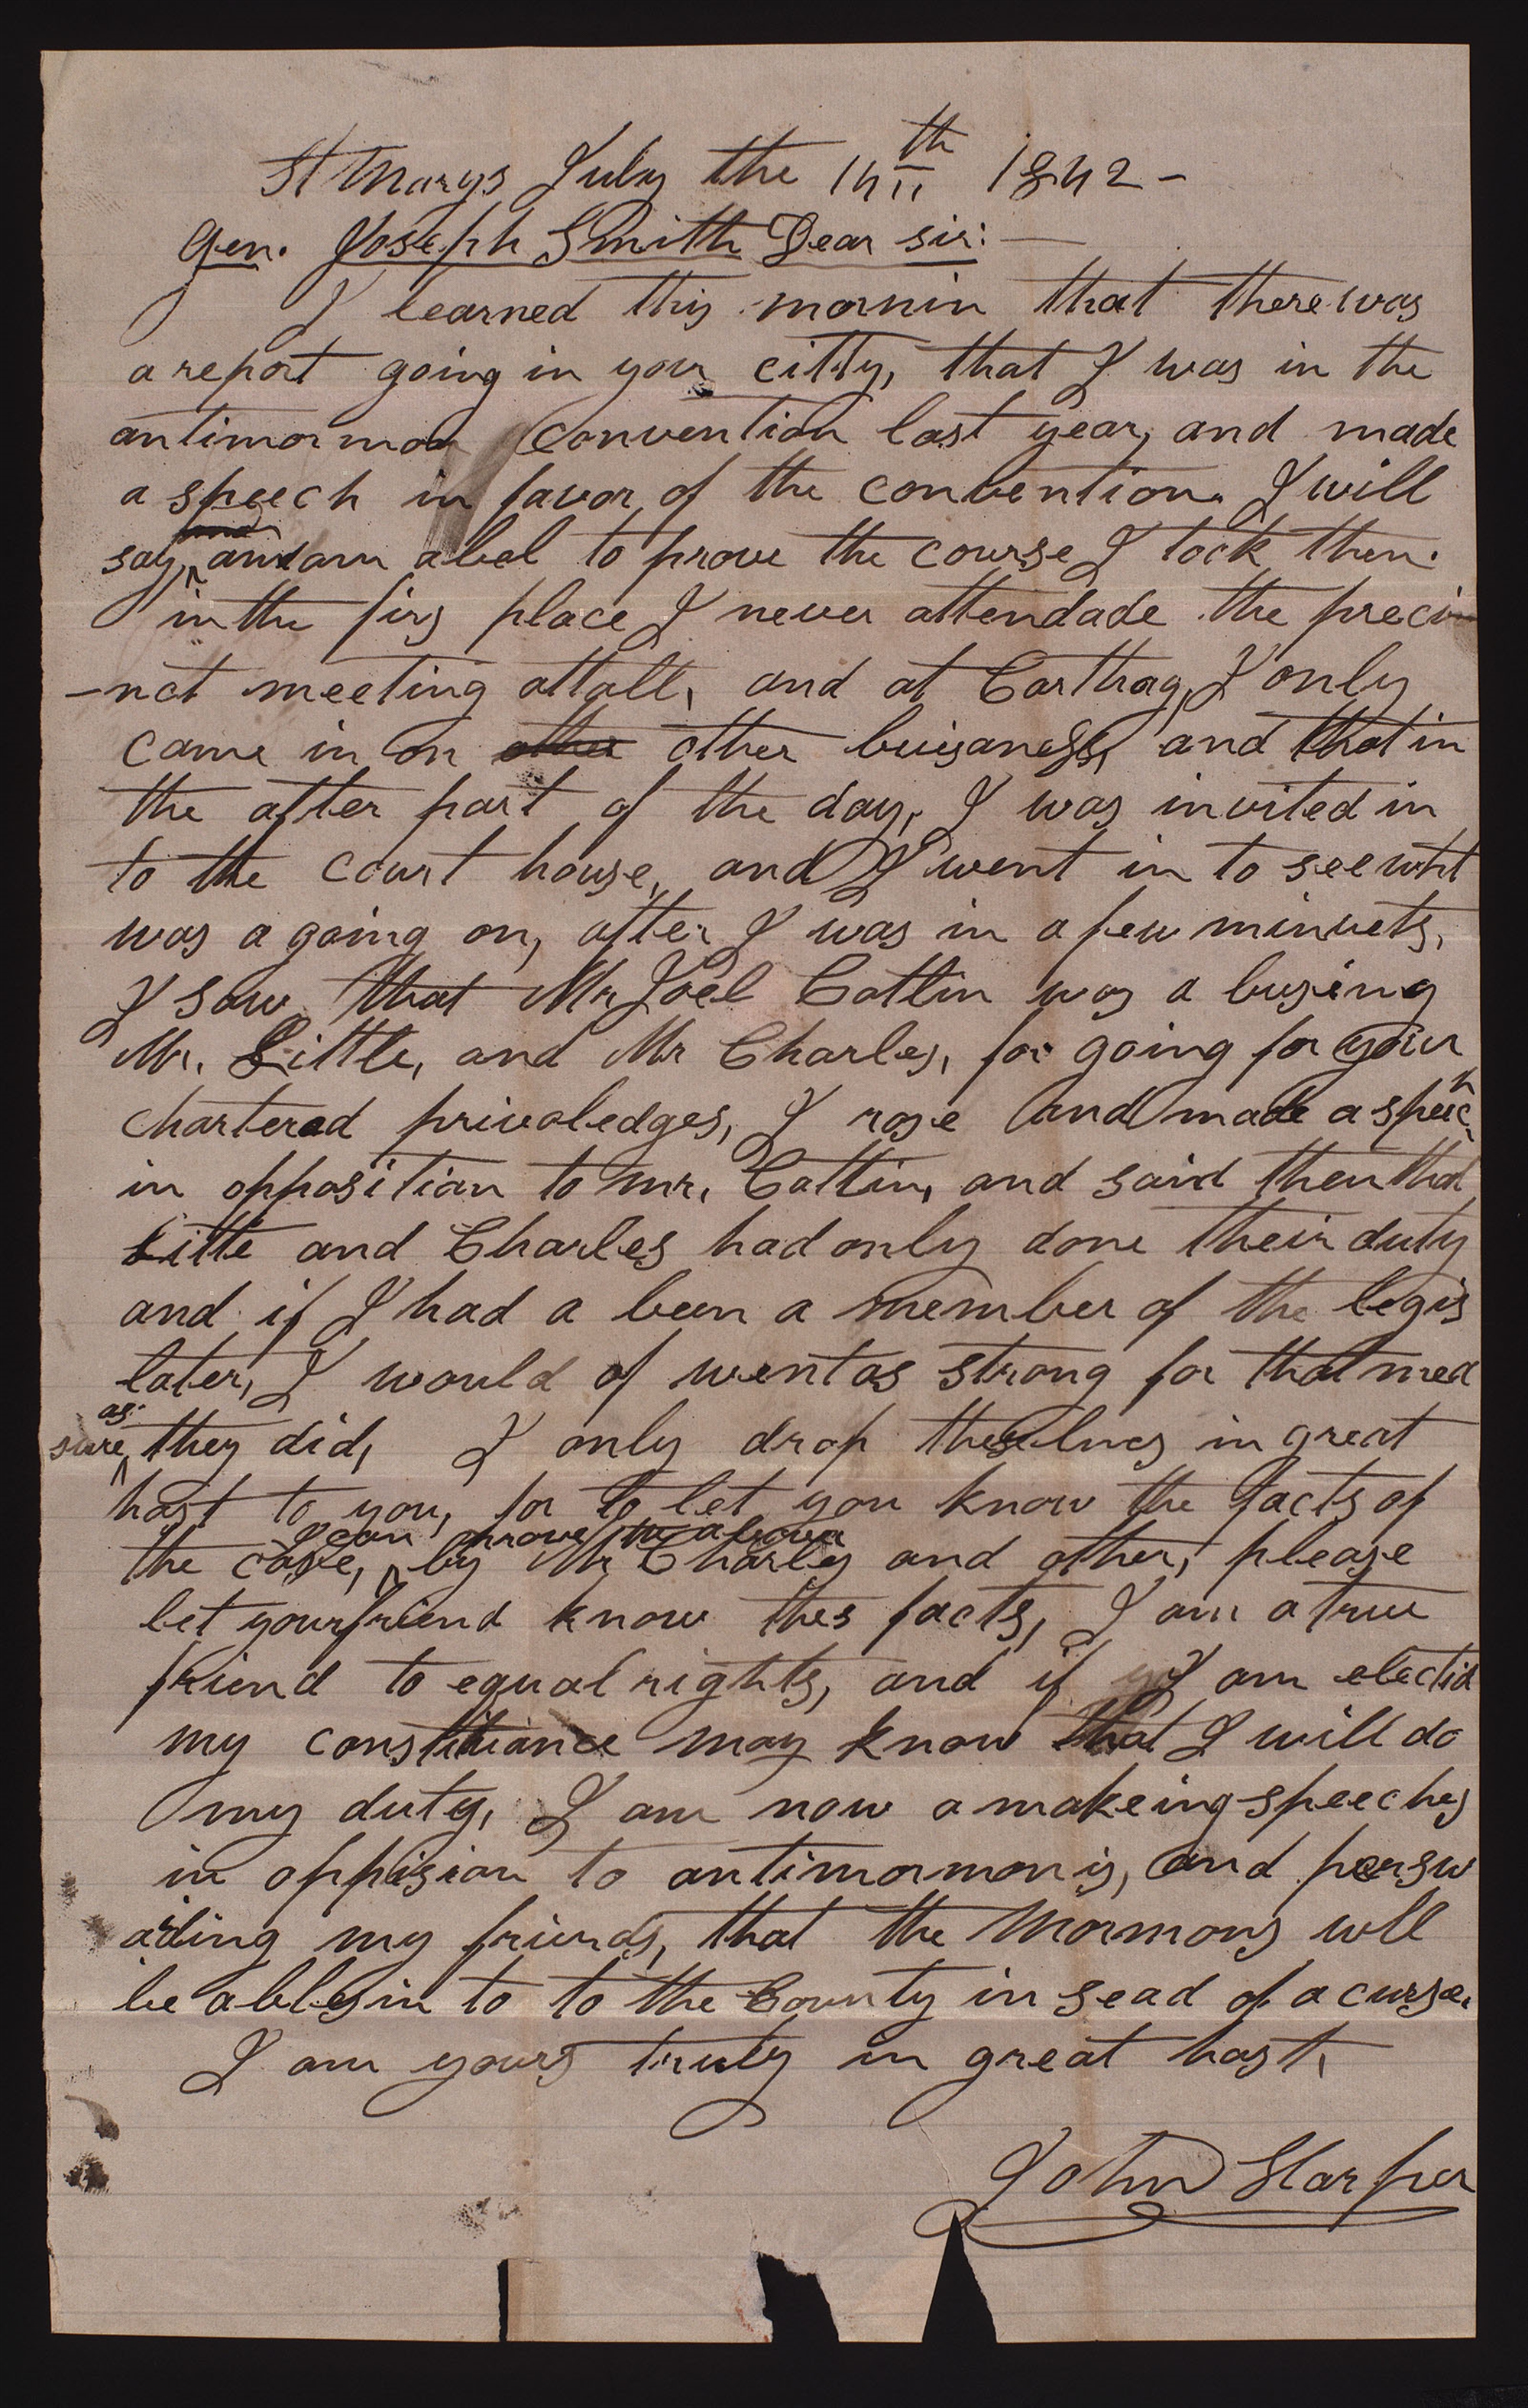 St Marys July the 14th 1842 -
Gen. Joseph Smith Dear sir: —
I learned this mornin that there was
a report going in your citty, that I was in the
antimormon convention last year, and made
a speech in favor of the convention. I will
say, and am abel to prove the course I took then.
in the firs place I never attendade the preci
-nct meeting attall, and at Carthag, I only
came in on other other buisaness, and that in
the after part of the day, I was invited in
to the court house, and I went in to see wht
was a going on, after I was in a few minuets,
I saw that Mr Joel Catlin was a busing
Mr. Little, and Mr Charles, for going for your
chartered privaledges, I rose and made a speech
in opposition to mr. Catlin, and said then that
Little and Charles had only done their duty
and if I had a been a member of the legis
later, I would of went as strong for that mea
sure, as they did, I only drop theselines in great
hast to you, for to let you know the facts of
the case, I can prove the above by Mr Charles and other, please
let your friend know thes facts, I am a true
friend to equal rights, and if I am electid
my constituance may know that I will do
my duty, I am now a makeing speeches
in oppision to antimormonis, and persw
ading my friends, that the Mormons will
be ablesin to to the County in sead of a curse.
I am yours truly in great hast,
John Harper